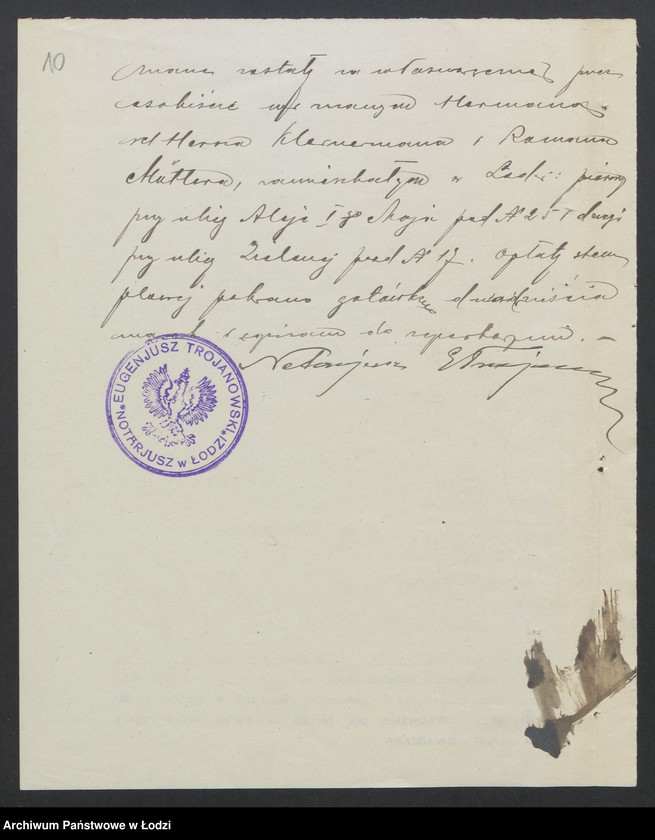 10
znane zostały za własnoręczne przez
osobiście mi znanych Hermana
vel Hersza Kleinermana i Romana
Müllera, zamieszkałych w Łodzi: pierwszy
przy ulicy Aleje I go Maja pod № 25 drugi
przy ulicy Zielonej pod № 17. Opłaty stem
plowej pobrano gotówką dwadzieścia
marek i wpisano do repertorjum. —
Notarjusz ETrojanowski
EUGENJUSZ TROJANOWSKI
NOTARJUSZ w ŁODZI
Archiwum Państwowe w Łodzi